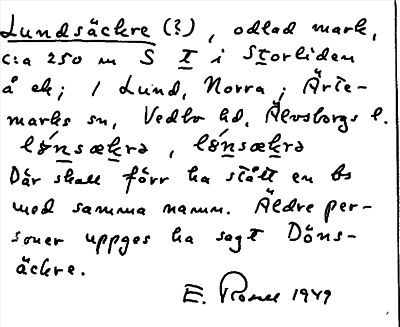 Lundsäckre (?), odlad mark,
c:a 250 m S I i Storliden
å ek; / Lund, Norra, Ärte-
marks sn, Vedbo hd, Älvsborgs l.
lǿnsækrə, lǿnsækrə
Där skall förr ha stått en bs
med samma namn. Äldre per-
soner uppges ha sagt Döns-
äckre.
E. 1949